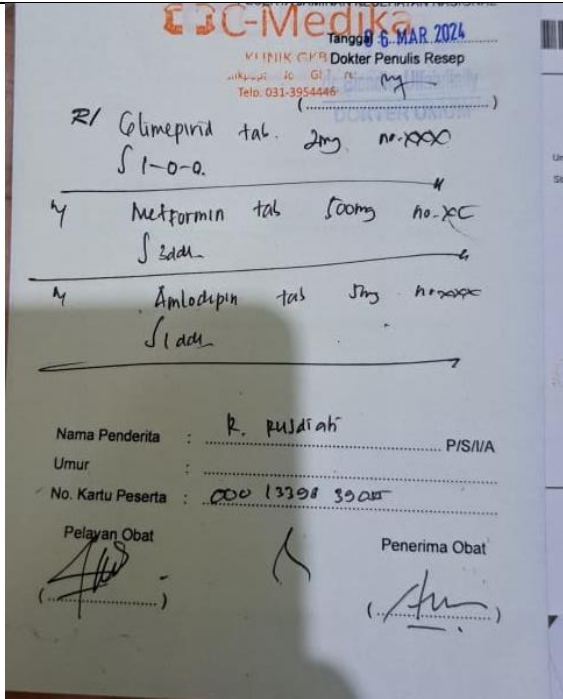 C-Medika
Tanggal 06 MAR 2024
KLINIK GKB Dokter Penulis Resep
Telp. 031-3954446
(........................)
DOKTER UMUM
R/ Glimepirid tab. 2mg no. XXX
S 1-0-0.
R/ Metformin tab 500mg no. XC
S 3dd1
R/ Amlodipin tab 5mg no XXX
S 1 dd1
Nama Penderita : R. Rusdiah P/S/I/A
Umur :
No. Kartu Peserta : 000 13398
Pelayan Obat Penerima Obat
(........................) (........................)